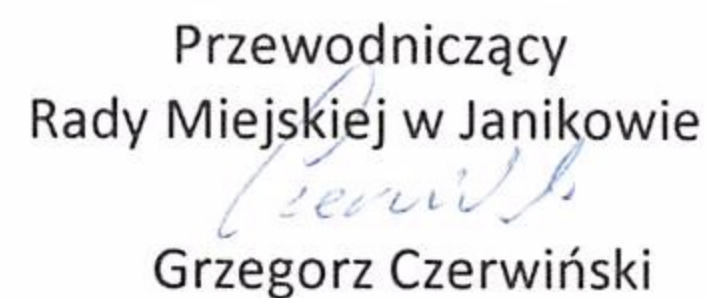 Przewodniczący
Rady Miejskiej w Janikowie
Grzegorz Czerwiński